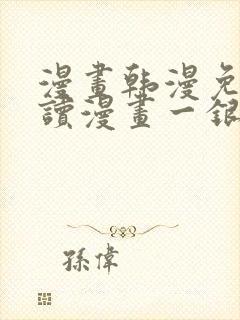 漫畫韩漫免
讀漫畫一銀
孫偉